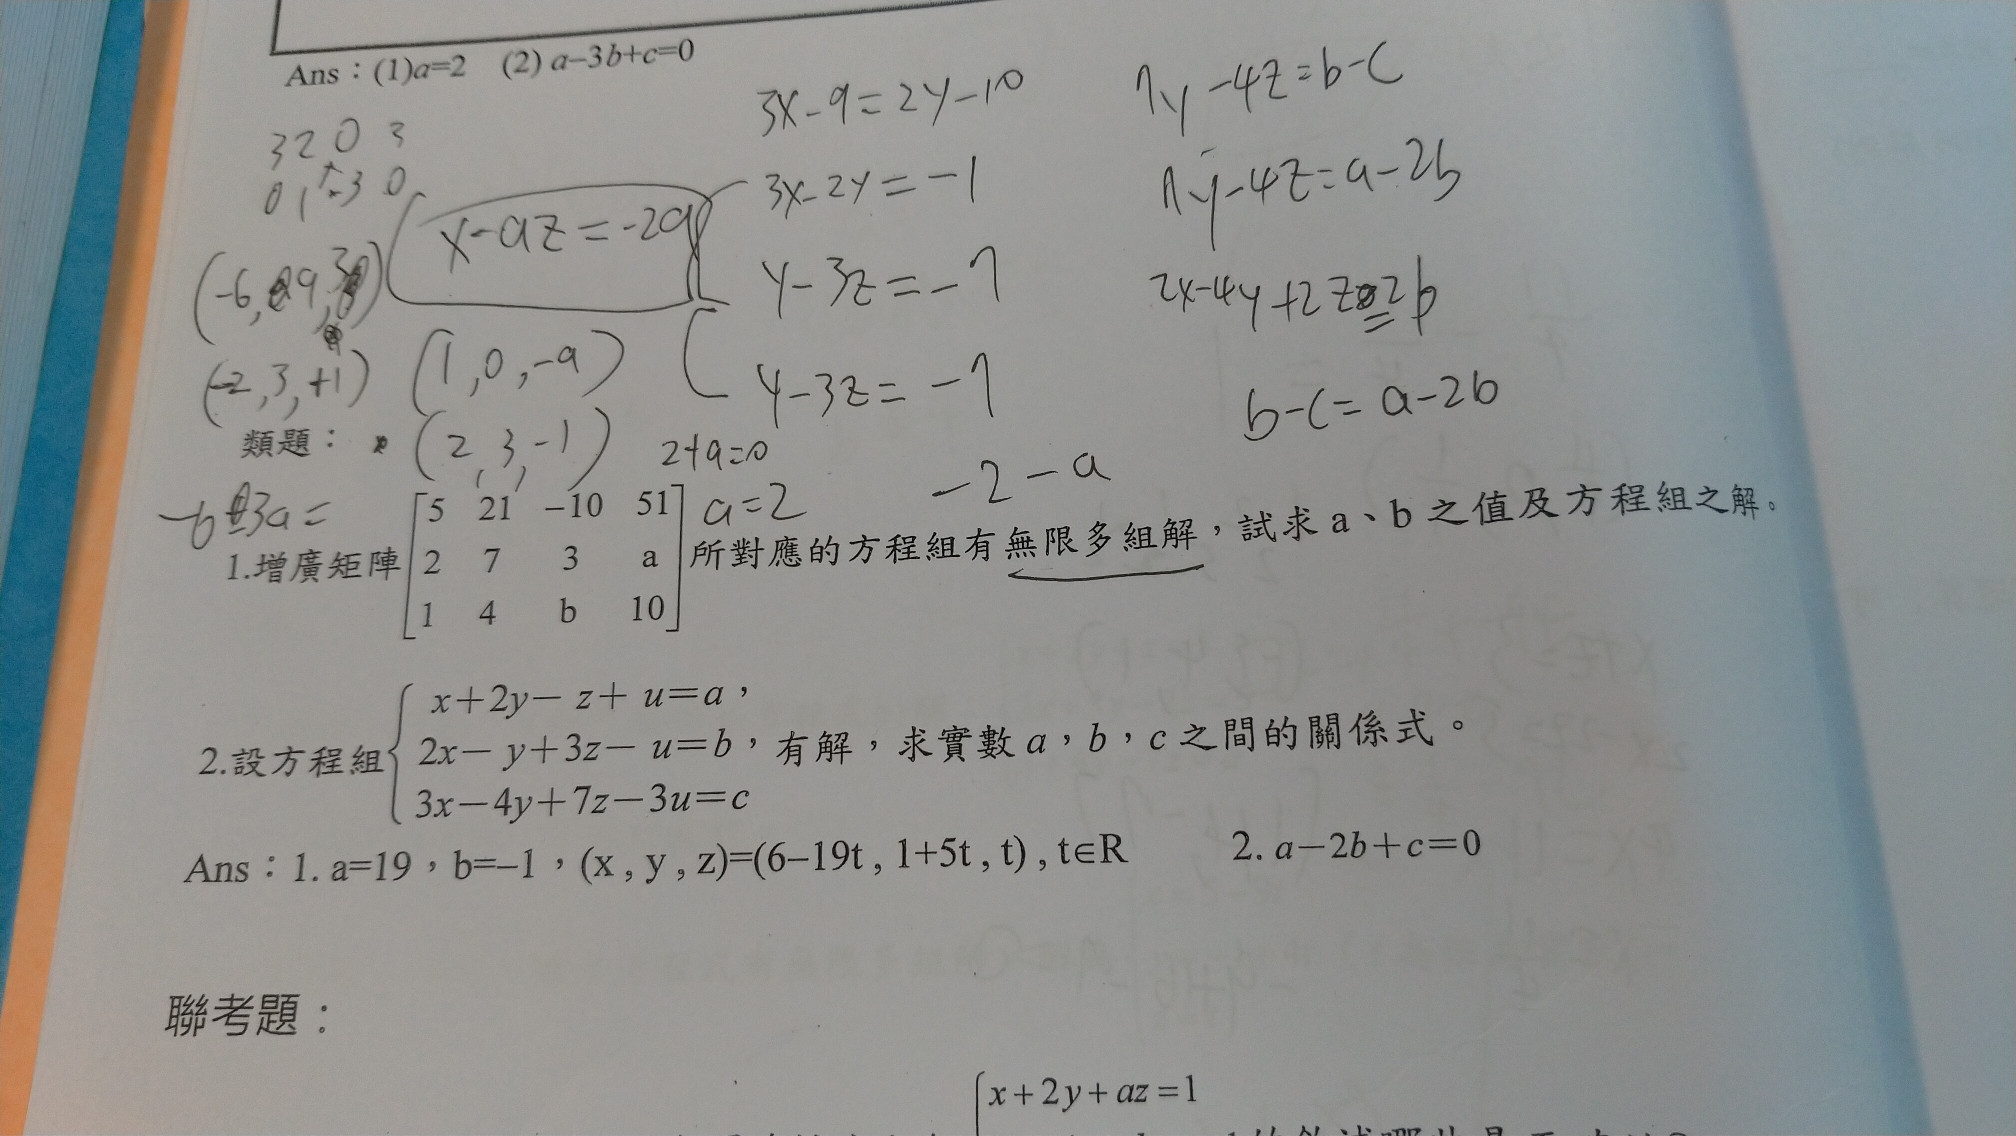 Ans：(1)a=2 (2) a–3b+c=0
3 2 0 3
0 1 -3 0
x-az=-2a
3x-9=2y-10
3x-2y=-1
y-3z=-7
y-3z=-7
7y-4z=b-c
7y-4z=a-2b
2x-4y+2z=2b
b-c=a-2b
(-2,3,+1)
(1,0,-a)
類題：
(2,3,-1)
2+a=0
a=2
-2-a
1.增廣矩陣
5 21 −10 51
2 7 3 a
1 4 b 10
所對應的方程組有無限多組解，試求 a、b 之值及方程組之解。
x+2y− z+ u=a，
2.設方程組 2x− y+3z− u=b，有解，求實數 a，b，c 之間的關係式。
3x−4y+7z−3u=c
Ans：1. a=19，b=–1，(x , y , z)=(6–19t , 1+5t , t) , t∈R 2. a−2b+c=0
聯考題：
x+2y+az=1